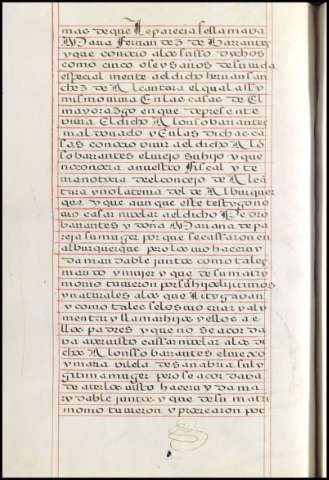 mas de que le parecia se llamava
Maria Fernandez de Barrantes
y que conocio a los susso dichos
como cinco o seys años de su vida
especial mente a el dicho hernan san
chez de Alcantara el qual assy
mismo viuia En las casas de El
mayorazgo en que de presente
viuia El dicho Alonso barrantes
maldonado y En las dichas ca
sas conocio viuir a el dicho Alo
so barrantes el viejo su hijo y que
no conocia a nuestro fiscal y te
nia notoria del concejo de Alca
tara y no la tenia del de Alburquer
que y que aun que este testigo no
vio casar ni velar a el dicho Pedro
barantes y doña Mariana de pa
reja su muger por que se cassaron en
alburquerque pero los vio hacer vy
da maridable juntos como tales
marido y muger y que de su matri
monio tuvieron por sus hijos ligitimos
y naturales a los que litygavan
y como tales se los vio criar y aly
mentar y llamar hijos y ellos a e
llos padres y que no se acorda
va aver visto cassar ni velar a los di
chos Alonsso barantes el viejo
y maria vilela de sanabria su ly
gitima muger pero se acordava
de averlos visto hacer vyda ma
rydable juntos y que de su matri
monio tuvieron y procrearon por